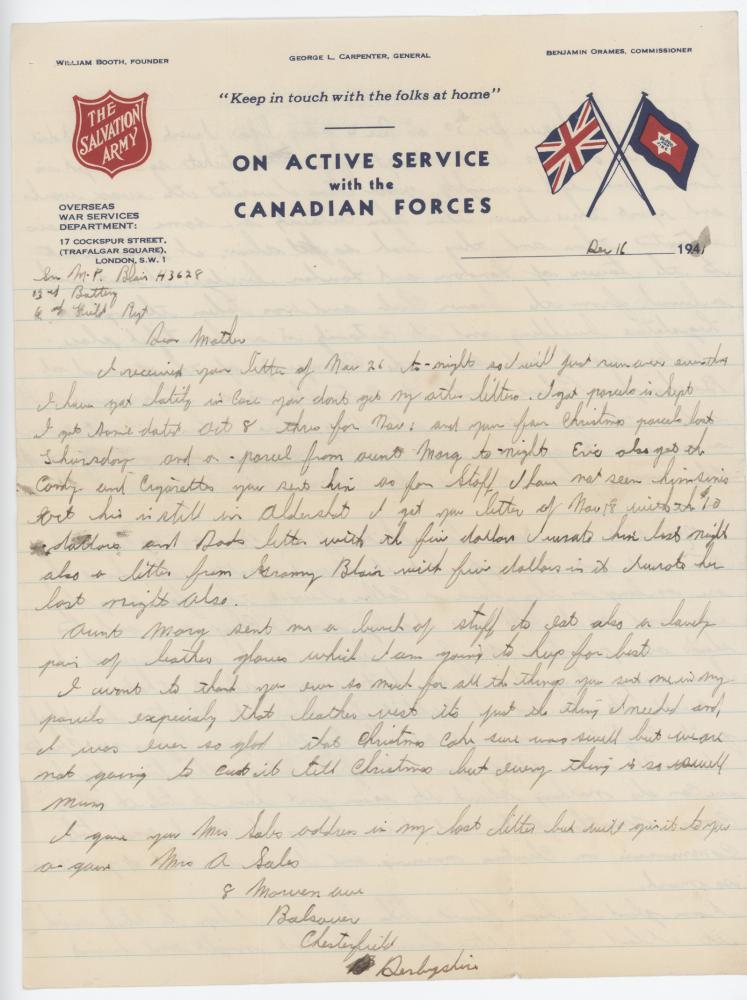 WILLIAM BOOTH, FOUNDER
GEORGE L. CARPENTER, GENERAL
BENJAMIN ORAMES, COMMISSIONER
THE
SALVATION
ARMY
"Keep in touch with the folks at home"
ON ACTIVE SERVICE
with the
CANADIAN FORCES
OVERSEAS
WAR SERVICES
DEPARTMENT:
17 COCKSPUR STREET,
(TRAFALGAR SQUARE),
LONDON, S.W. 1
Dec 16 1941
M.P. Blair H3628
13 Battery
Field Rgt
Dear Mother
I received your letter of Nov 26 to-night so I will just run over
I have got lately in case you dont get my other letters. I got parcels in Sept
I got some dated Oct 8 three for Nov 1 and your four Christmas parcels last
Thursday and a-parcel from aunt Marg to-night Eric also got the
Candy and Cigarettes you sent him so far Staff I have not seen him since
Oct his is still in Aldershot I got your letter of Nov 18 with the $10
dollars and Dads letter with the five dollars I wrote him last night
also a letter from Granny Blair with five dollars in it I wrote her
last night also.
Aunt Marg sent me a bunch of stuff to eat also a lovely
pair of leather gloves which I am going to keep for best
I want to thank you ever so much for all the things you sent me in my
parcels expecialy that leather vest its just the thing I needed and
I was ever so glad that Christmas Cake sure was swell but we are
not going to cut it till Christmas but every thing is so swell
Mum
I gave you Mrs Sales address in my last letter but will give it to you
a-gain Mrs A Sales
8 Morven ave
Bolsover
Chesterfield
Derbyshire